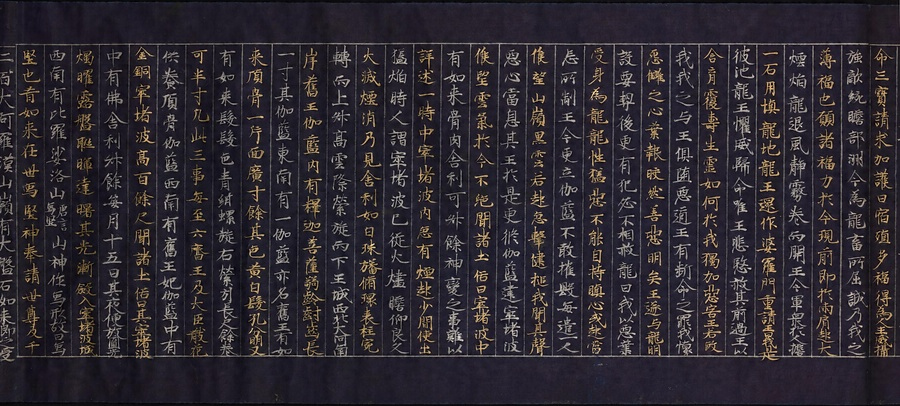 命三寶請求加護曰宿殖多福得為王威攝
強敵統贍部洲今為龍畜所屈誠乃我之
薄福也願諸福力於今現前即於兩肩起大
煙焰龍退風靜霧卷雲開王令軍眾人擔
一石用填龍池龍王還作婆羅門重請王曰我是
彼池龍王懼威歸命唯王悲愍赦其前過王以
含育覆燾生靈如何於我獨加惡害王若殺
我我之與王俱墮惡道王有斷命之罪我懷
怨讎之心業報皎然善惡明矣王遂與龍明
設要契後更有犯必不相赦龍曰我以惡業
受身為龍龍性猛惡不能自持瞋心或起當
忘所制王今更立伽藍不敢摧毀每遣一人
候望山嶺黑雲若起急擊揵槌我聞其聲
惡心當息其王於是更修伽藍建窣堵波
候望雲氣於今不絕聞諸土俗曰窣堵波中
有如來骨肉舍利可升餘神變之事難以
詳述一時中窣堵波內忽有煙起少間便出
猛焰時人謂窣堵波已從火燼瞻仰良久
火滅煙消乃見舍利如白珠旛循環表柱宛
轉而上昇高雲際縈旋而下王城西北大河南
岸舊王伽藍內有釋迦菩薩弱齡齔齒長
一寸其伽藍東南有一伽藍亦名舊王有如
來頂骨一片面廣寸餘其色黃白髮孔分明又
有如來髮髮色青紺螺旋右縈引長尺餘卷
可半寸凡此三事每至六齋王及大臣散花
供養頂骨伽藍西南有舊王妃伽藍中有
金銅窣堵波高百餘尺聞諸土俗曰其窣堵波
中有佛舍利升餘每月十五日其夜便放圓光
燭曜露盤聯暉達曙其光漸斂入窣堵波城
西南有比羅娑洛山唐言象堅山神作象形故曰象
堅也昔如來在世象堅神奉請世尊及千
二百大阿羅漢山巔有大盤石如來即之受